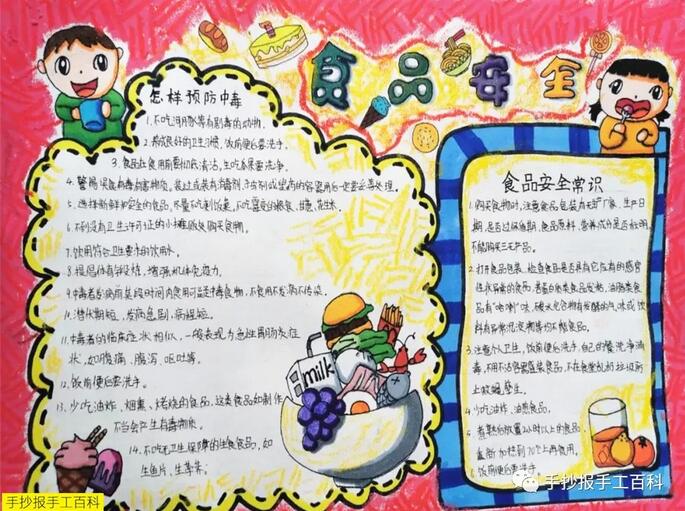 食品安全
怎样预防中毒
1.不吃河豚等有剧毒的动物.
2.养成良好的卫生习惯,饭前便后要洗手.
3.食品在食用前要彻底清洁,生吃瓜果要洗净.
4.警惕误食有毒有害物质,装过
5.选择新鲜和安全的食品,尽量不吃剩饭菜,不吃霉变的粮食、甘蔗、花生米.
6.不到没有卫生许可证的小摊贩处购买食物.
7.饮用符合卫生要求的饮用水.
8.提倡体育锻炼,增强机体免疫力.
9.中毒者发病前某段时间内食用可疑中毒食物,不食用不发病不传染.
10.潜伏期短、发病急剧,病程短.
11.中毒者的临床症状相似,一般表现为急性胃肠炎症
状,如腹痛、腹泻、呕吐等.
12.饭前便后要洗手.
13.少吃油炸、烟熏、烤烧的食品,这类食品如制作
不当会产生有毒物质.
14.不吃无卫生保障的生食食品,如
生鱼片、生
milk
食品安全常识
1.购买食物时,注意食品包装有无厂家、生产日
期,是否过保质期,食品原料、营养成分是否标明,
不能购买三无产品.
2.打开食品包装,检查食品是否具有它应有的感官
性状.
料有异常沉淀物等均不能食品.
3.注意个人卫生,饭前便后洗手,自己的餐
4.少吃油炸、油煎食品.
5.煮熟后放置2小时以上的食品,
重新加热到70℃上再食用.
6.饭前便后要洗手.
手抄报手工百科
手抄报手工百科